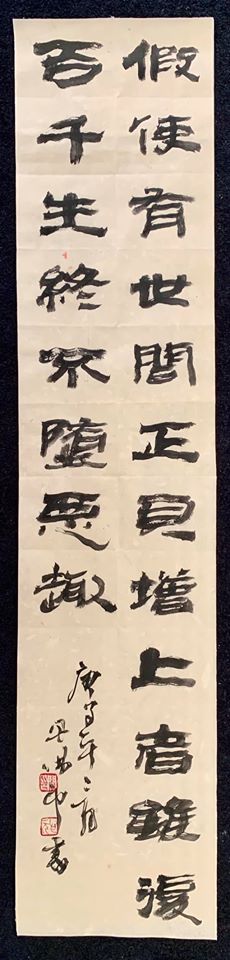 假使有世間正見增上者雖復
百千生終不墮惡趣
庚子年
書